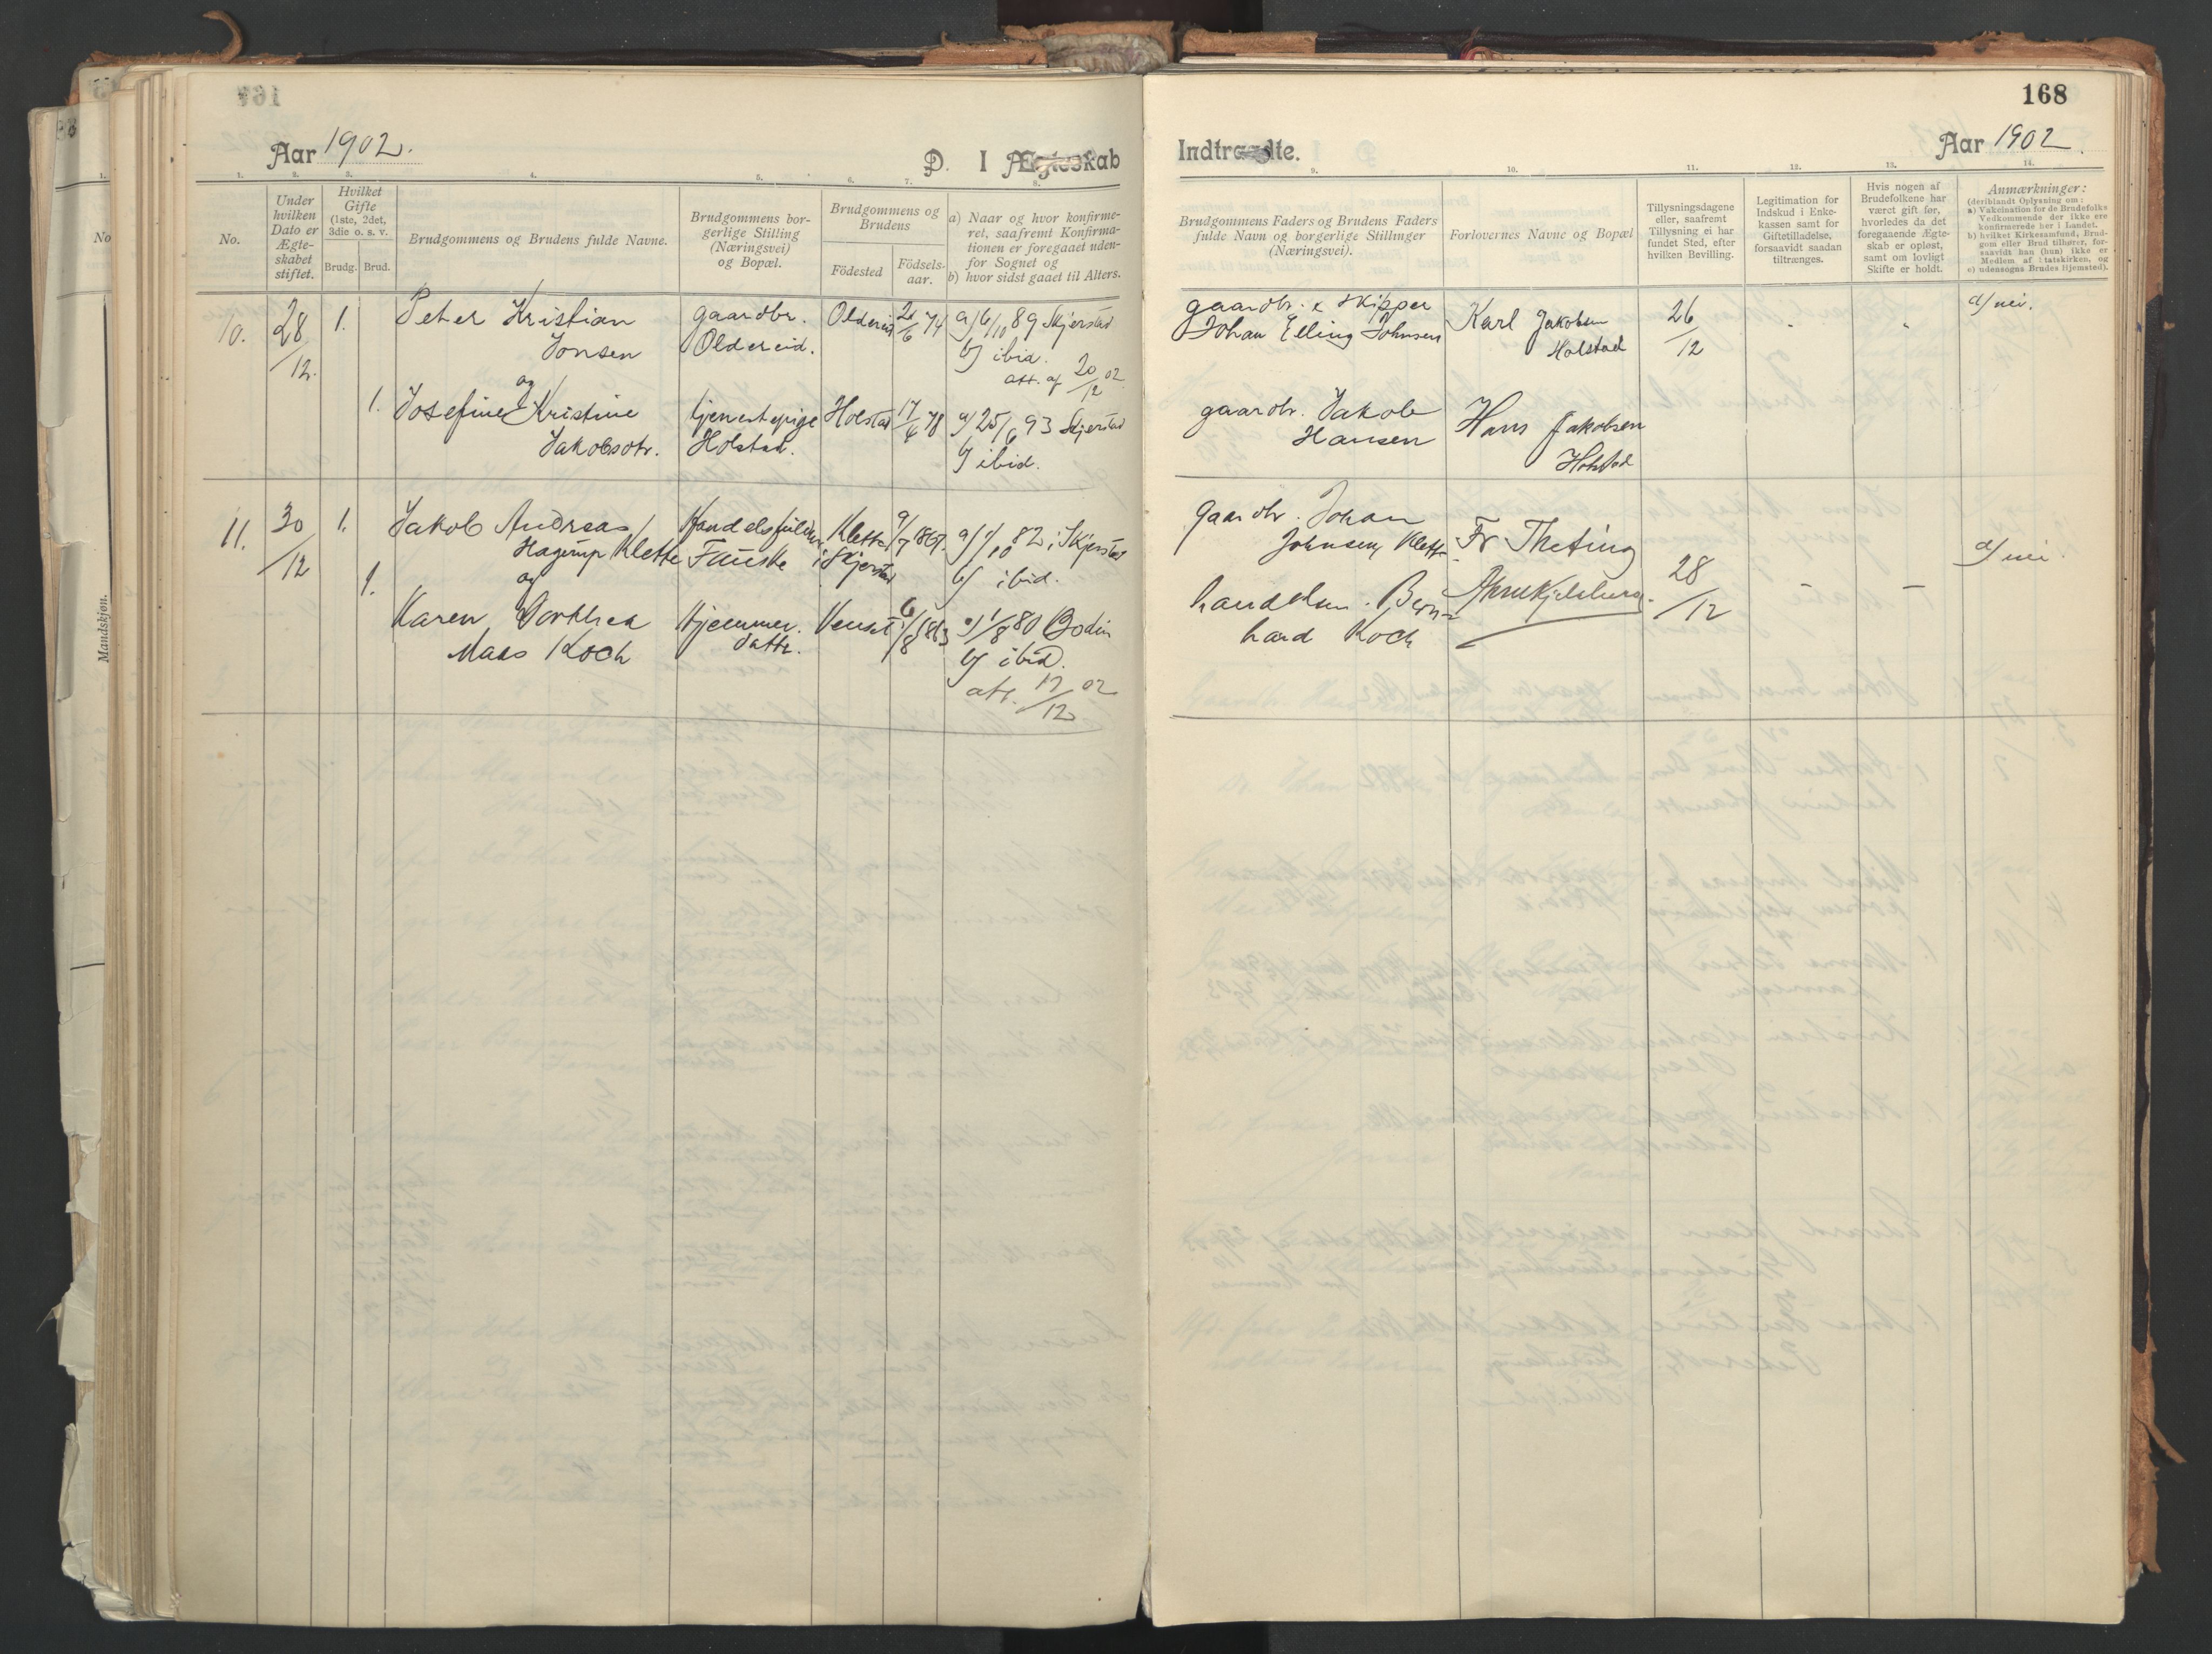 Aar 1902.
D. I Ægteskab
1. 2. 3. 4. 5. 6. 7. 8.
No.
Under hvilken Dato er Ægte-skabet stiftet.
Hvilket Gifte (1ste, 2det, 3die o. s. v.
Brudg. Brud.
Brudgommens og Brudens fulde Navne.
Brudgommens bor-
gerlige Stilling
(Næringsvei)
og Bopæl.
Brudgommens og
Brudens
Födested
Födsels-
aar.
a) Naar og hvor konfirme-
ret, saafremt Konfirma-
tionen er foregaaet uden-
for Sognet og
b) hvor sidst gaaet til Alters.
10. 28/12. 1. Peter Kristian
Jonsen
gaardbr.
Oldereid.
Oldereid
21/6 74
a/ 6/10 89 Skjerstad
b/ ibid.
att. af 20/12 02
og
1. Josefine Kristine
Jakobsdtr.
tjenestepige
Holstad.
Holstad
17/4 78
a/ 25/6 93 Skjerstad
b/ ibid.
11. 30/12 1. Jakob Andreas
Hagerup Klette
Fauske
Klette
i Skjerstad
9/7 1867.
a/ 1/10 82 i Skjerstad
b/ ibid.
og
1. Karen Dorthea
Maas Koch
Hjemmev.
datter.
Venset
6/8 1863
a/ 1/8 80 Bodin
b/ ibid.
att. 17/12 02
168
Indtraadte.
Aar 1902.
9. 10. 11. 12. 13. 14.
Brudgommens Faders og Brudens Faders
fulde Navn og borgerlige Stillinger
(Næringsvei).
Forlovernes Navne og Bopæl
Tillysningsdagene
eller, saafremt
Tillysning ei har
fundet Sted, efter
hvilken Bevilling.
Legitimation for
Indskud i Enke-
kassen samt for
Giftetilladelse,
forsaavidt saadan
tiltrænges.
Hvis nogen af
Brudefolkene har
været gift før,
hvorledes da det
foregaaende Ægte-
skab er opløst,
samt om lovligt
Skifte er holdt.
Anmærkninger:
(deriblandt Oplysning om:
a) Vakcination for de Brudefolks
Vedkommende der ikke ere
konfirmerede her i Landet.
b) hvilket Kirkesamfund, Brud-
gom eller Brud tilhører, for-
saavidt han (hun) ikke er
Medlem af Statskirken, og
c) udensogns Brudes Hjemsted).
gaardbr. & skipper
Johan Elling Johnsen
Karl Jakobsen
Holstad
26/12
a/ nei.
gaardbr. Jakob
Hansen
Hans Jakobsen
Holstad
gaardbr. Johan
Johnsen, Klette
Fr Theting
28/12
a/ nei.
handelsm. Bern-
hard Koch
No
Mandskjøn.